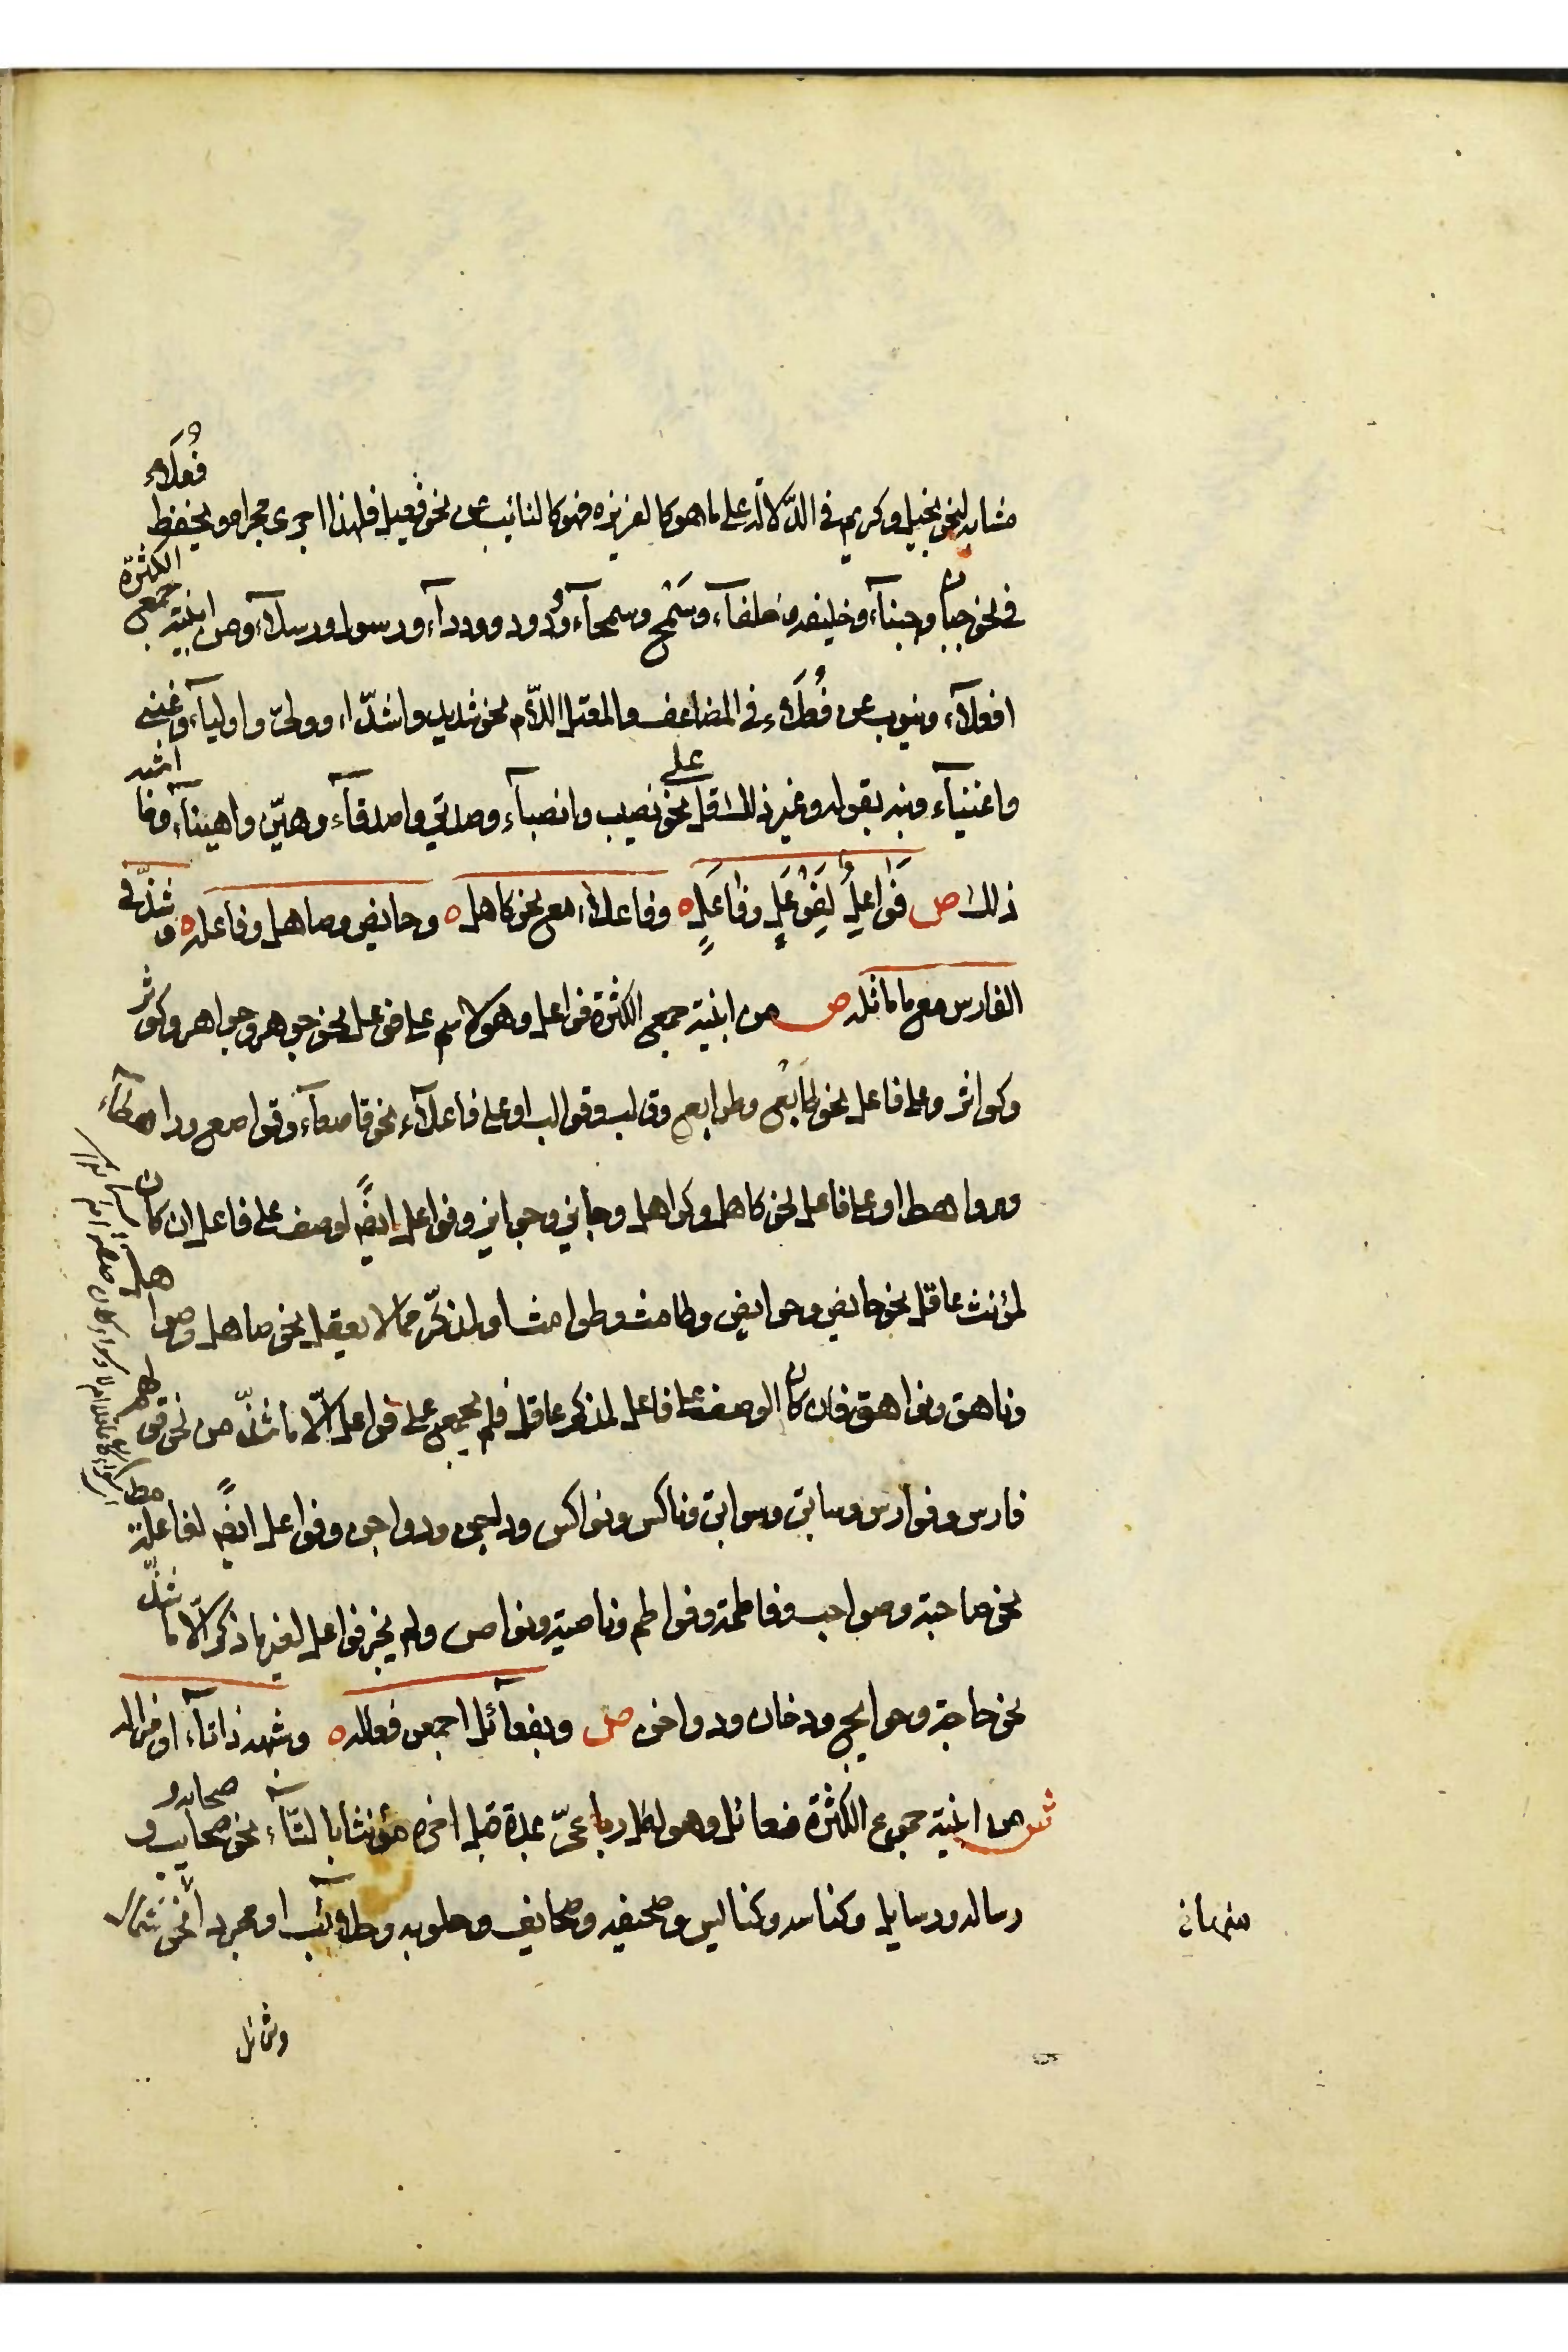 مشابه لنحو بخيل وكريم في الدّلالة على ما هو كالغريزة فهو كالنائب عن نحو فعيل فلهذا اجرى مجراه ويحفظ فُعلاء
في نحو جبان وجبنآء وخليفه وخلفآء وسَمْح وسمحآء وُدود وودداء ورسول ورسلآء ومن ابنية جمع الكثرة
افعلآء وينوب عن فُعَلاء في المضاعف والمعتل اللّام نحو شديد واشدّاء وولىّ واوليآء وغنى
واغنيآء ونبه بقوله وغير ذلك قل على نحو نصيب وانصبآء وصديق واصدقآء وهيّن واهينآء وما اشبه
ذلك ص فَوَاعِلُ لِفَوْعَلٍ وفاعَلٍ ه وفاعلاء مع نحو كاهل ه وحايض وصاهل وفاعله ه وشذّ في
الفارس مع ما ماثله ص من ابنية جمع الكثرة فواعل وهو لاسم على فوعل نحو جوهر وجواهر وكوثر
وكواثر وعلى فاعل نحو طابَع وطوابع وقالب وقوالب او على فاعلآء نحو قاصعآء وقواصع وراهطآء
ورواهط او على فاعل نحو كاهل وكواهل وجائز وجوائز وفواعل ايضًا لوصف على فاعل ان كان
لمؤنث عاقل نحو حايض وحوايض وطامث وطوامث او لمذكّر ممالا يعقل نحو صاهل وصواهل
وناهق ونواهق فان كان الوصف على فاعل لمذكر عاقل فلم يجمع على فواعل الّا ما شذّ من نحو قولهم
فارس وفوارس وسابق وسوابق وناكس ونواكس وداجن ودواجن وفواعل ايضًا لفاعلة مط
نحو صاحبة وصواحب وفاطمة وفواطم وناصية ونواص ولم يجز فواعل لغير ما ذكر الّا ما شذّ
نحو حاجة وحوايج ودخان ودواخن ص وبفعآئل اجمعن فعاله ه وشبهه ذا تاء او مزاله
ش من ابنية جموع الكثرة فعائل وهو لكل رباعىّ بمدة قبل اخره مؤنثا بالتّآء نحو سحابة وسحايب و
رساله ورسايل وكناسه وكنائس وصحيفه وصحايف وحلوبه وحلائب او مجردا نحو شمال
وشمائل